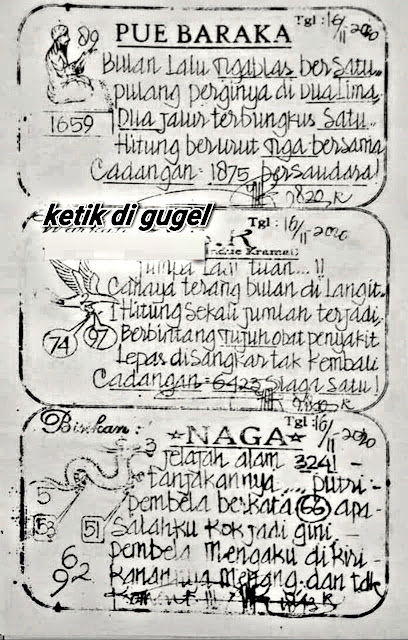 PUE BARAKA
Tgl: 16/11-2020
89
Bulan Lalu Tigablas bersatu..
pulang perginya di Dua Lima,
1659
Dua jalur terbungkus satu..
Hitung berurut Tiga bersama
Cadangan: 1875 bersaudara!
ketik di gugel
Tgl: 16/11-2020
Jumpa Lagi tuan...!!
Cahaya terang bulan di Langit.
Hitung sekali jumlah terjadi,
74 97
Berbintang Tujuh obat penyakit
Lepas disangkar tak kembali
Cadangan = 6423 siaga satu!
NAGA
Tgl: 16/11-2020
3
jelajah alam 3241 -
tanjakannya .... putri -
5
pembela berkata 66 apa-
53 51
salahku kok jadi gini -
6
pembela mengaku di kiri -
92
kanannya menang dan tak